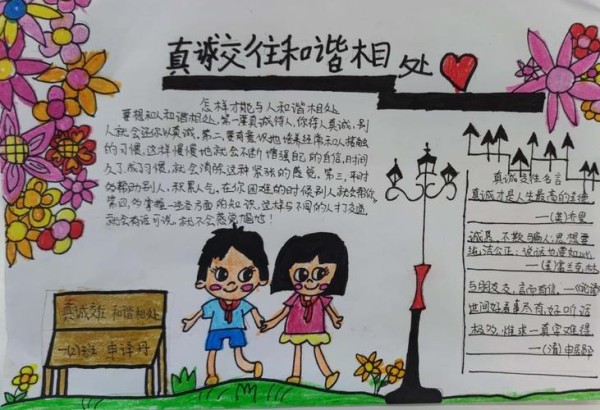 真诚交往和谐相处
怎样才能与人和谐相处
要想和人和谐相处,第一要真诚待人,你待人真诚,别
人就会还你以真诚。第二,要有意识地培养经常和人接触
的习惯,这样慢慢地就会不断增强自己的自信,时间
久了,成习惯,就会消除这种紧张的感觉。第三,平时
多帮助别人,积累人气,在你困难的时候别人就会帮你
第四,多掌握一些各方面的知识,这样与不同的人打交道,
就会有话可说,就不会感觉尴尬!
真诚交往 和谐相处
一(2)班 申译丹
真诚交往名言
真诚才是人生最高的美德
诚恳,不欺骗人;思想要
纯洁公正;说话也要如此
—(美)富兰克林
与朋友交,言而有信。—《论语》
世间好看事尽有,好听话
极多,惟求一真字难得
—(清)申居郧